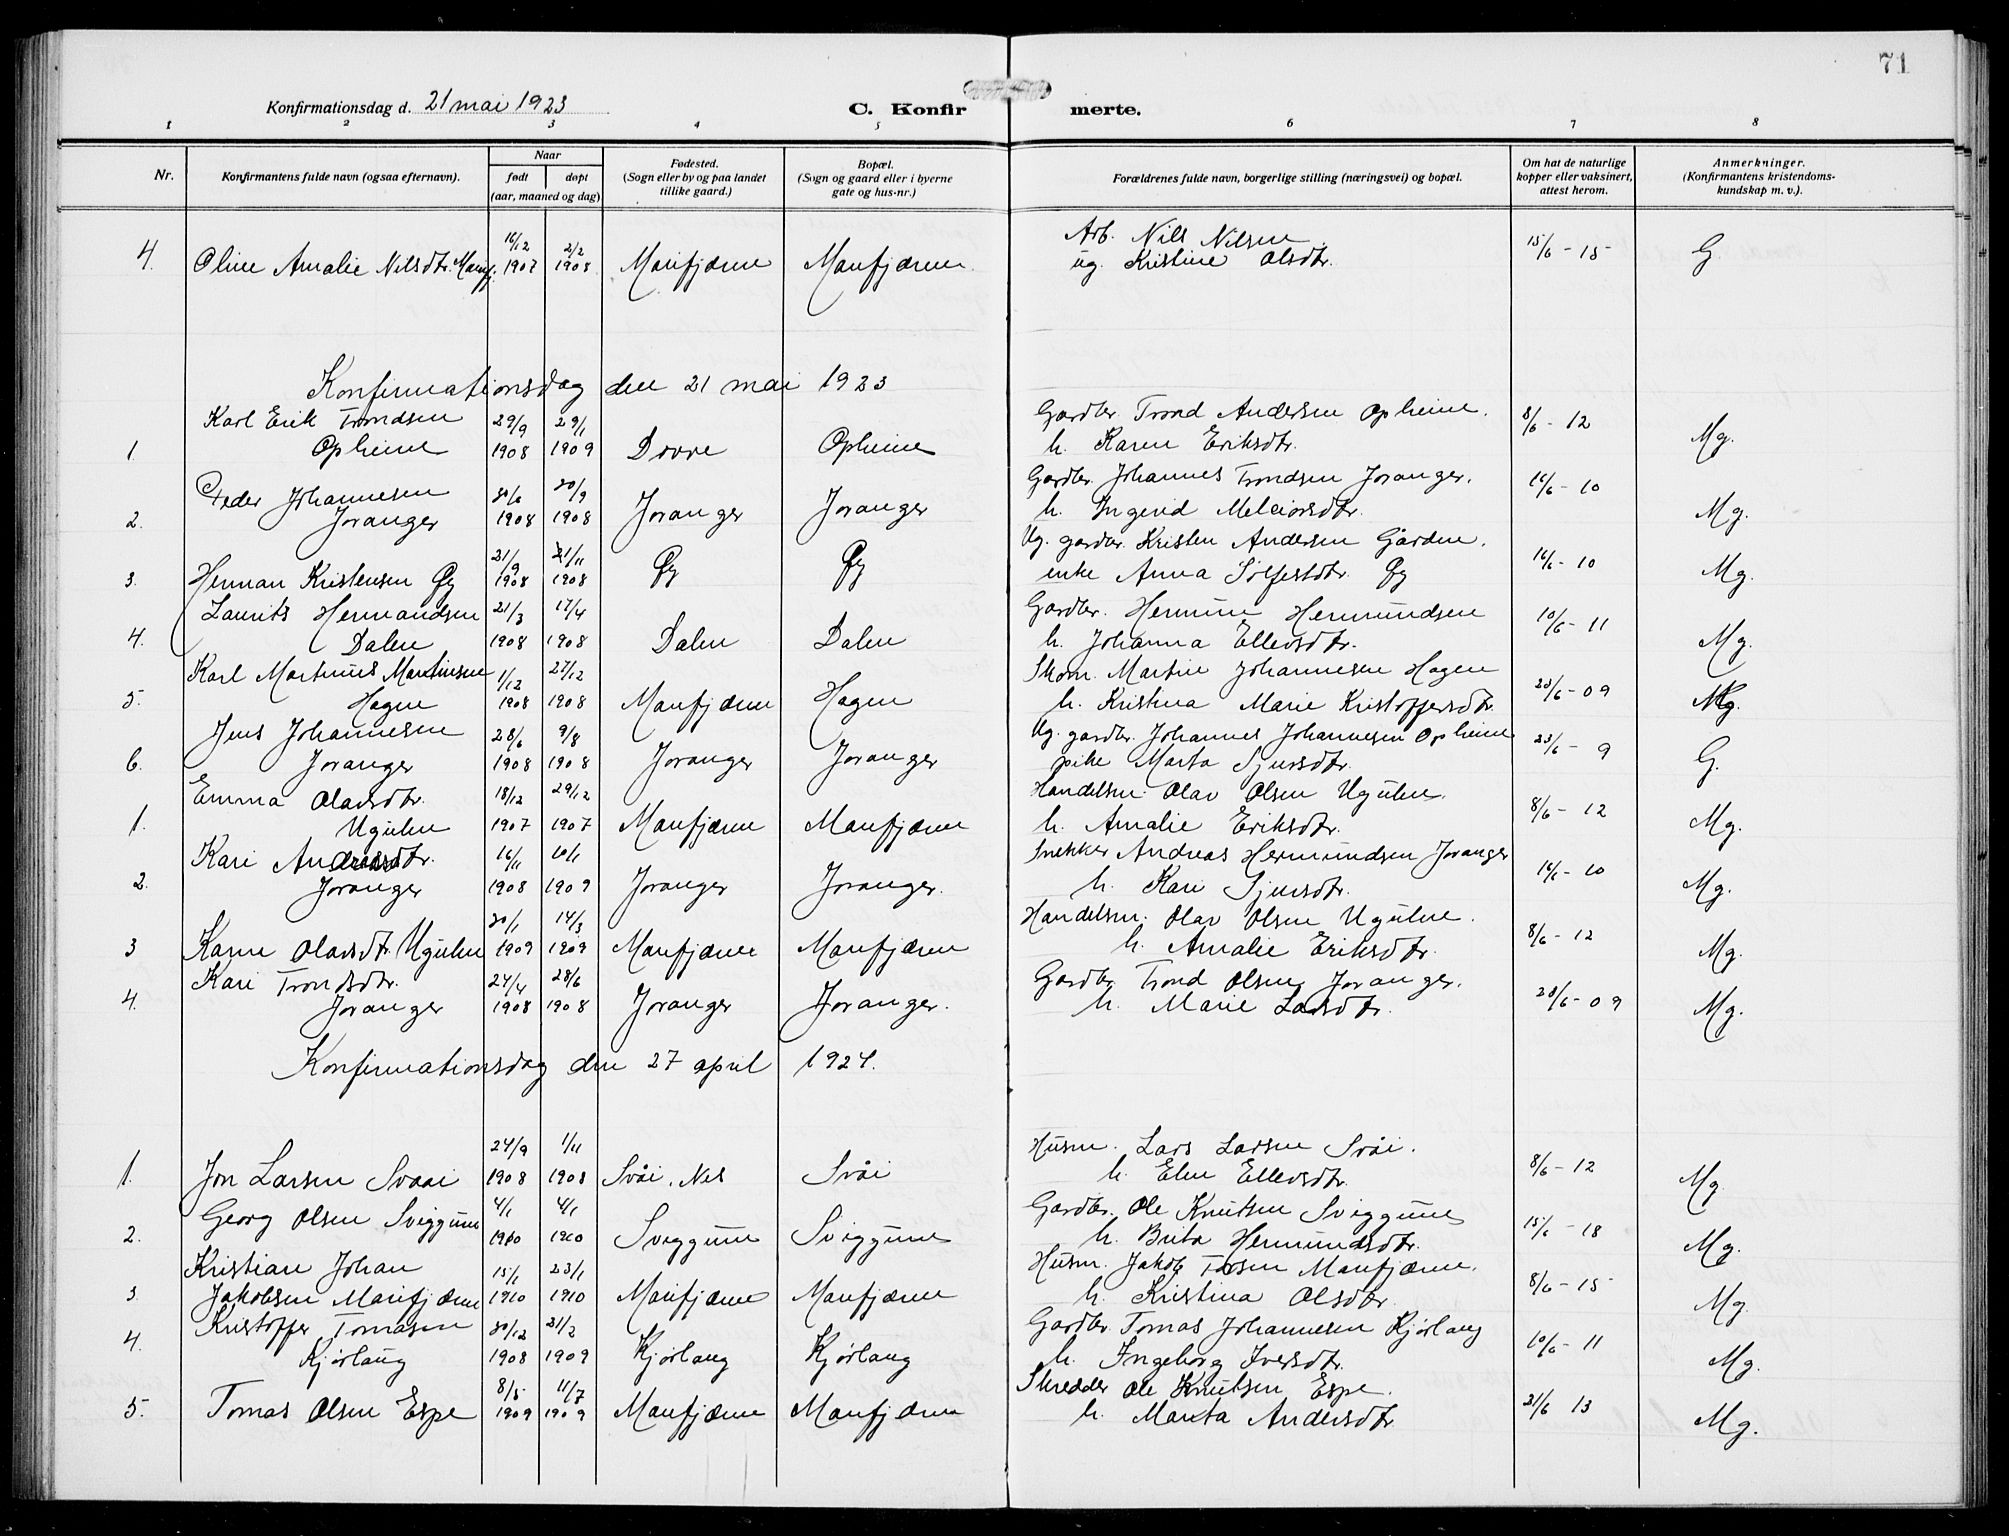 71
Konfirmationsdag d. 21 mai 1923
C. Konfir merte.
1 2 3 4 5 6 7 8
Nr.
Konfirmantens fulde navn (ogsaa efternavn).
Naar
født døpt
(aar, maaned og dag)
Fødested.
(Sogn eller by og paa landet
tillike gaard.)
Bopæl.
(Sogn og gaard eller i byerne
gate og hus-nr.)
Forældrenes fulde navn, borgerlige stilling (næringsvei) og bopæl.
Om hat de naturlige
kopper eller vaksinert,
attest herom.
Anmerkninger.
(Konfirmantens kristendoms-
kundskap m. v.).
16/12 2/2 Arb. Nils Nilsen 15/6 - 15
4. Oline Amalie Nilsdtr. Marifj. 1907 1908 Marifjæren Marifjæren ug. Kristine Olsdtr. G.
Konfirmationsdag den 21 mai 1923
Karl Erik Trondsen 29/9 29/1 Gardbr. Trond Andersen Opheim. 8/6 - 12
1 Opheim 1908 1909 Dovre Opheim h. Karen Eriksdtr. Mg.
Peder Johannesen 20/9 Gardbr. Johannes Trondsen Joranger. 16/6 - 10
2. Joranger 1908 1908 Joranger Joranger h. Ingerid Melciorsdtr. Mg.
21/9 21/11 Ug. gardbr. Kristen Andersen Gården.
3. Herman Kristensen Øy 1908 1908 Øy Øy enke Anna Sølfestdtr. Øy 16/6 - 10 Mg.
Laurits Hermandsen 21/3 17/4 Gardbr. Hermun Hermundsen 10/6 - 11
4. Dalen 1908 1908 Dalen Dalen h. Johanna Ellevsdtr. Mg.
Karl Martinus Martinsen 1/12 27/12 Skom. Martin Johannesen Hagen
5. Hagen 1908 1908 Marifjæren Hagen h. Kristina Marie Kristoffersdtr. 23/6 - 09 Mg.
Jens Johannesen 28/6 9/8 Ug. gardbr. Johannes Johannesen Opheim
6. Joranger 1908 1908 Joranger Joranger pike Marta Sjursdtr. 23/6 - 9 G.
Emma Olavsdtr. 18/12 29/12 Handelsm. Olav Olsen Ugulen.
1. Ugulen 1907 1907 Marifjæren Marifjæren h. Amalie Eriksdtr. 8/6 - 12 Mg.
Kari Andreasdtr. 16/11 10/1 Snekker Andreas Hermundsen Joranger
2. Joranger 1908 1909 Joranger Joranger. h. Kari Sjursdtr. 16/6 - 10 Mg.
20/1 14/3 Handelsm. Olav Olsen Ugulen.
3 Karen Olavsdtr. Ugulen 1909 1909 Marifjæren Marifjæren h. Amalie Eriksdtr. 8/6 - 12 Mg.
Kari Trondsdtr. 24/4 28/6 Gardbr. Trond Olsen Joranger.
4. Joranger 1908 1908 Joranger Joranger. h. Marie Larsdtr. 23/6 - 09 Mg.
Konfirmationsdag den 27 april 1924.
24/9 1/11 Husm. Lars Larsen Svåi.
1. Jon Larsen Svaai 1908 1908 Svåi, Nes Svåi h. Elen Ellevsdtr. 8/6 - 12 Mg
Georg Olsen Sviggum 4/1 4/1 Gardbr. Ole Knutsen Sviggum
2. 1910 1910 Sviggum Sviggum h. Brita Hermundsdtr. 15/6 - 18 Mg.
Kristian Johan 15/1 23/1 Husm. Jakob Marifjæren.
3. Jakobsen Marifjæren 1910 1910 Marifjæren Marifjæren h. Kristina Olsdtr. 8/6 - 15 Mg.
Kristoffer Tomasen 30/12 21/2 Gardbr. Tomas Johannesen Kjørlaug
4. Kjørlaug 1908 1909 Kjørlaug Kjørlaug h. Ingeborg Iversdtr. 10/6 - 11 Mg.
8/5 11/7 Skredder Ole Knutsen Espe.
5. Tomas Olsen Espe 1909 1909 Marifjæren Marifjæren h. Marita Andersdtr. 21/6 13 Mg.